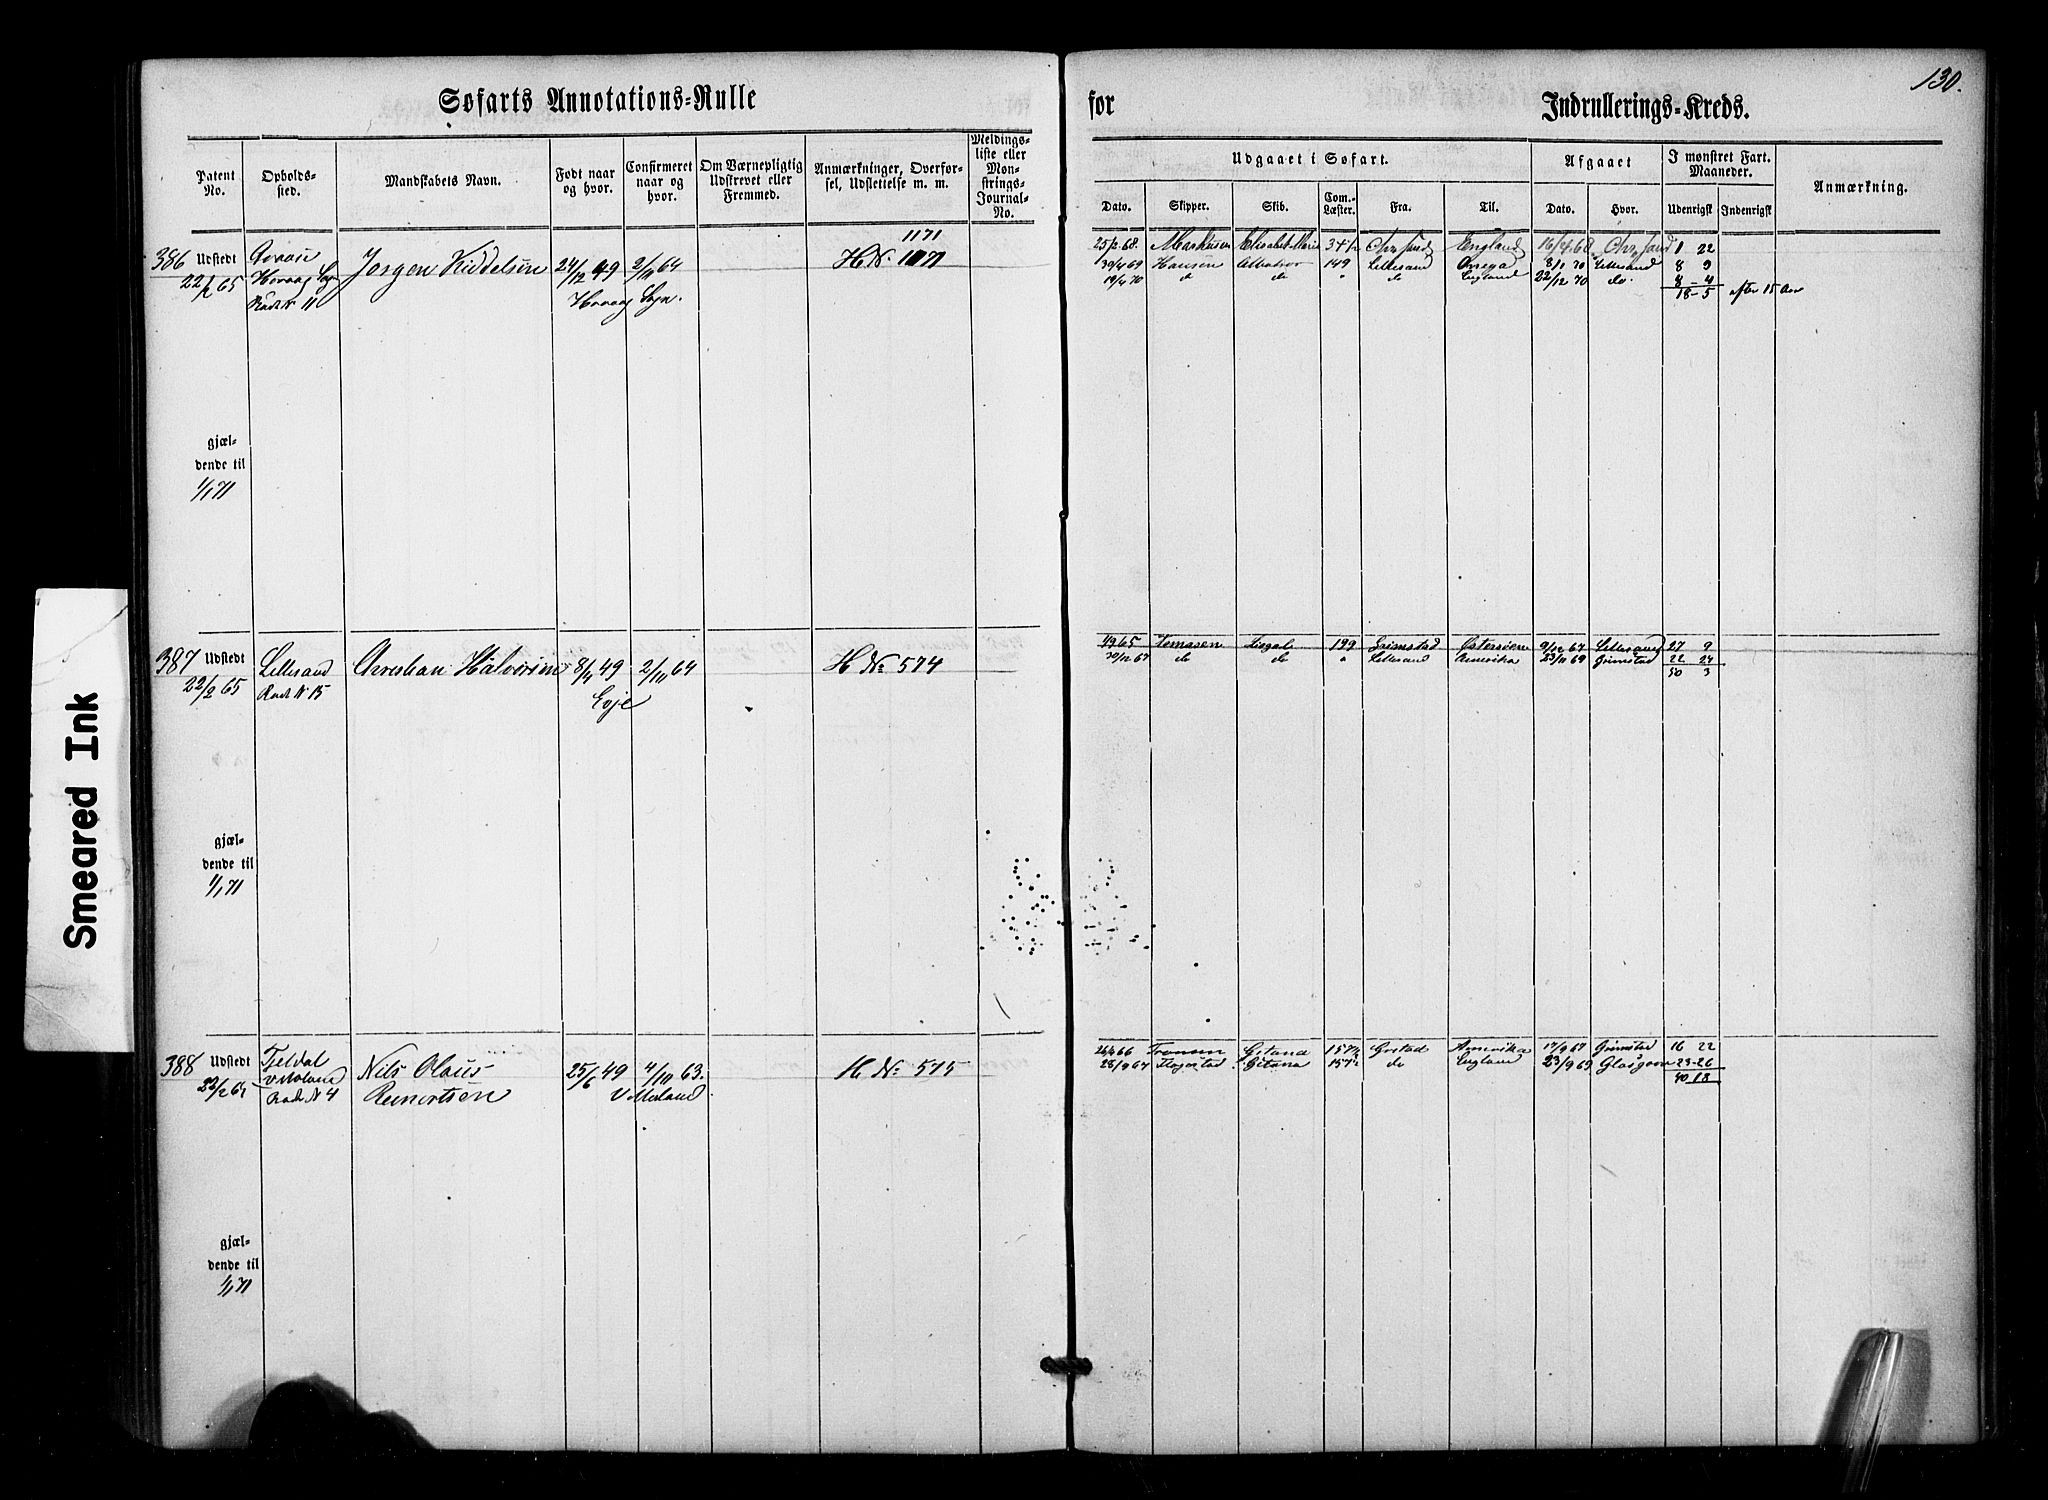 130.
Søfarts Annotations-Rulle for Indrullerings-Kreds.
Patent No.
Opholdssted.
Mandskabets Navn.
Født naar og hvor.
Confirmeret naar og hvor.
Om Værnepligtig Udskrevet eller Fremmed.
Anmærkninger, Overførsel, Udslettelse m. m.
Meldingsliste eller Mønstrings-Journal-No.
Udgaaet i Søfart.
Afgaaet
I mønstret Fart. Maaneder.
Anmærkning.
Dato. Skipper. Skib. Com.-Læster. Fra. Til. Dato. Hvor. Udenrigst Indenrigst
386 Udstedt 22/2 65
Hovaag Sogn
Jørgen Kiddelsen 24/12 49 2/11 64
Hovaag Sogn.
1171
H No 1071
25/2 68. Markusen Elisabet Marie 34 1/2 Chr.sand England 16/4 68 Chr.sand 1 22
30/4 69 Hansen 149 Lillesand 8/1 70 Lillesand 8 9
19/4 70 do do " do England 22/12 70 do. 8-4
18-5 after 15 Aar
gjældende til
1/1 71
387 Udstedt 22/2 65
Lillesand
Rode N 15
Halvorsen 8/4 49 2/11 64
Evje
H No 574
1/9 65 199 Grimstad Østersøen 9/12 67 Lillesand 27 9
30/12 67 do do " Lillesand Amerika 23/11 69 Grimstad 22 24
50 3
gjældende til
1/1 71
388 Udstedt 22/2 65
Tjeldal
V Moland
Rode N 4
Nils Olaus
Reinertsen
25/6 49 4/10 63.
V Moland
H No 575
26/4 66 Gitana 157 1/2 Grstad Amerika 17/9 67 Grimstad 16 22
25/9 67 Gitana 157 1/2 do England 23/9 69 Glasgow 23-26
40 18
gjældende til
1/1 71
Smeared Ink